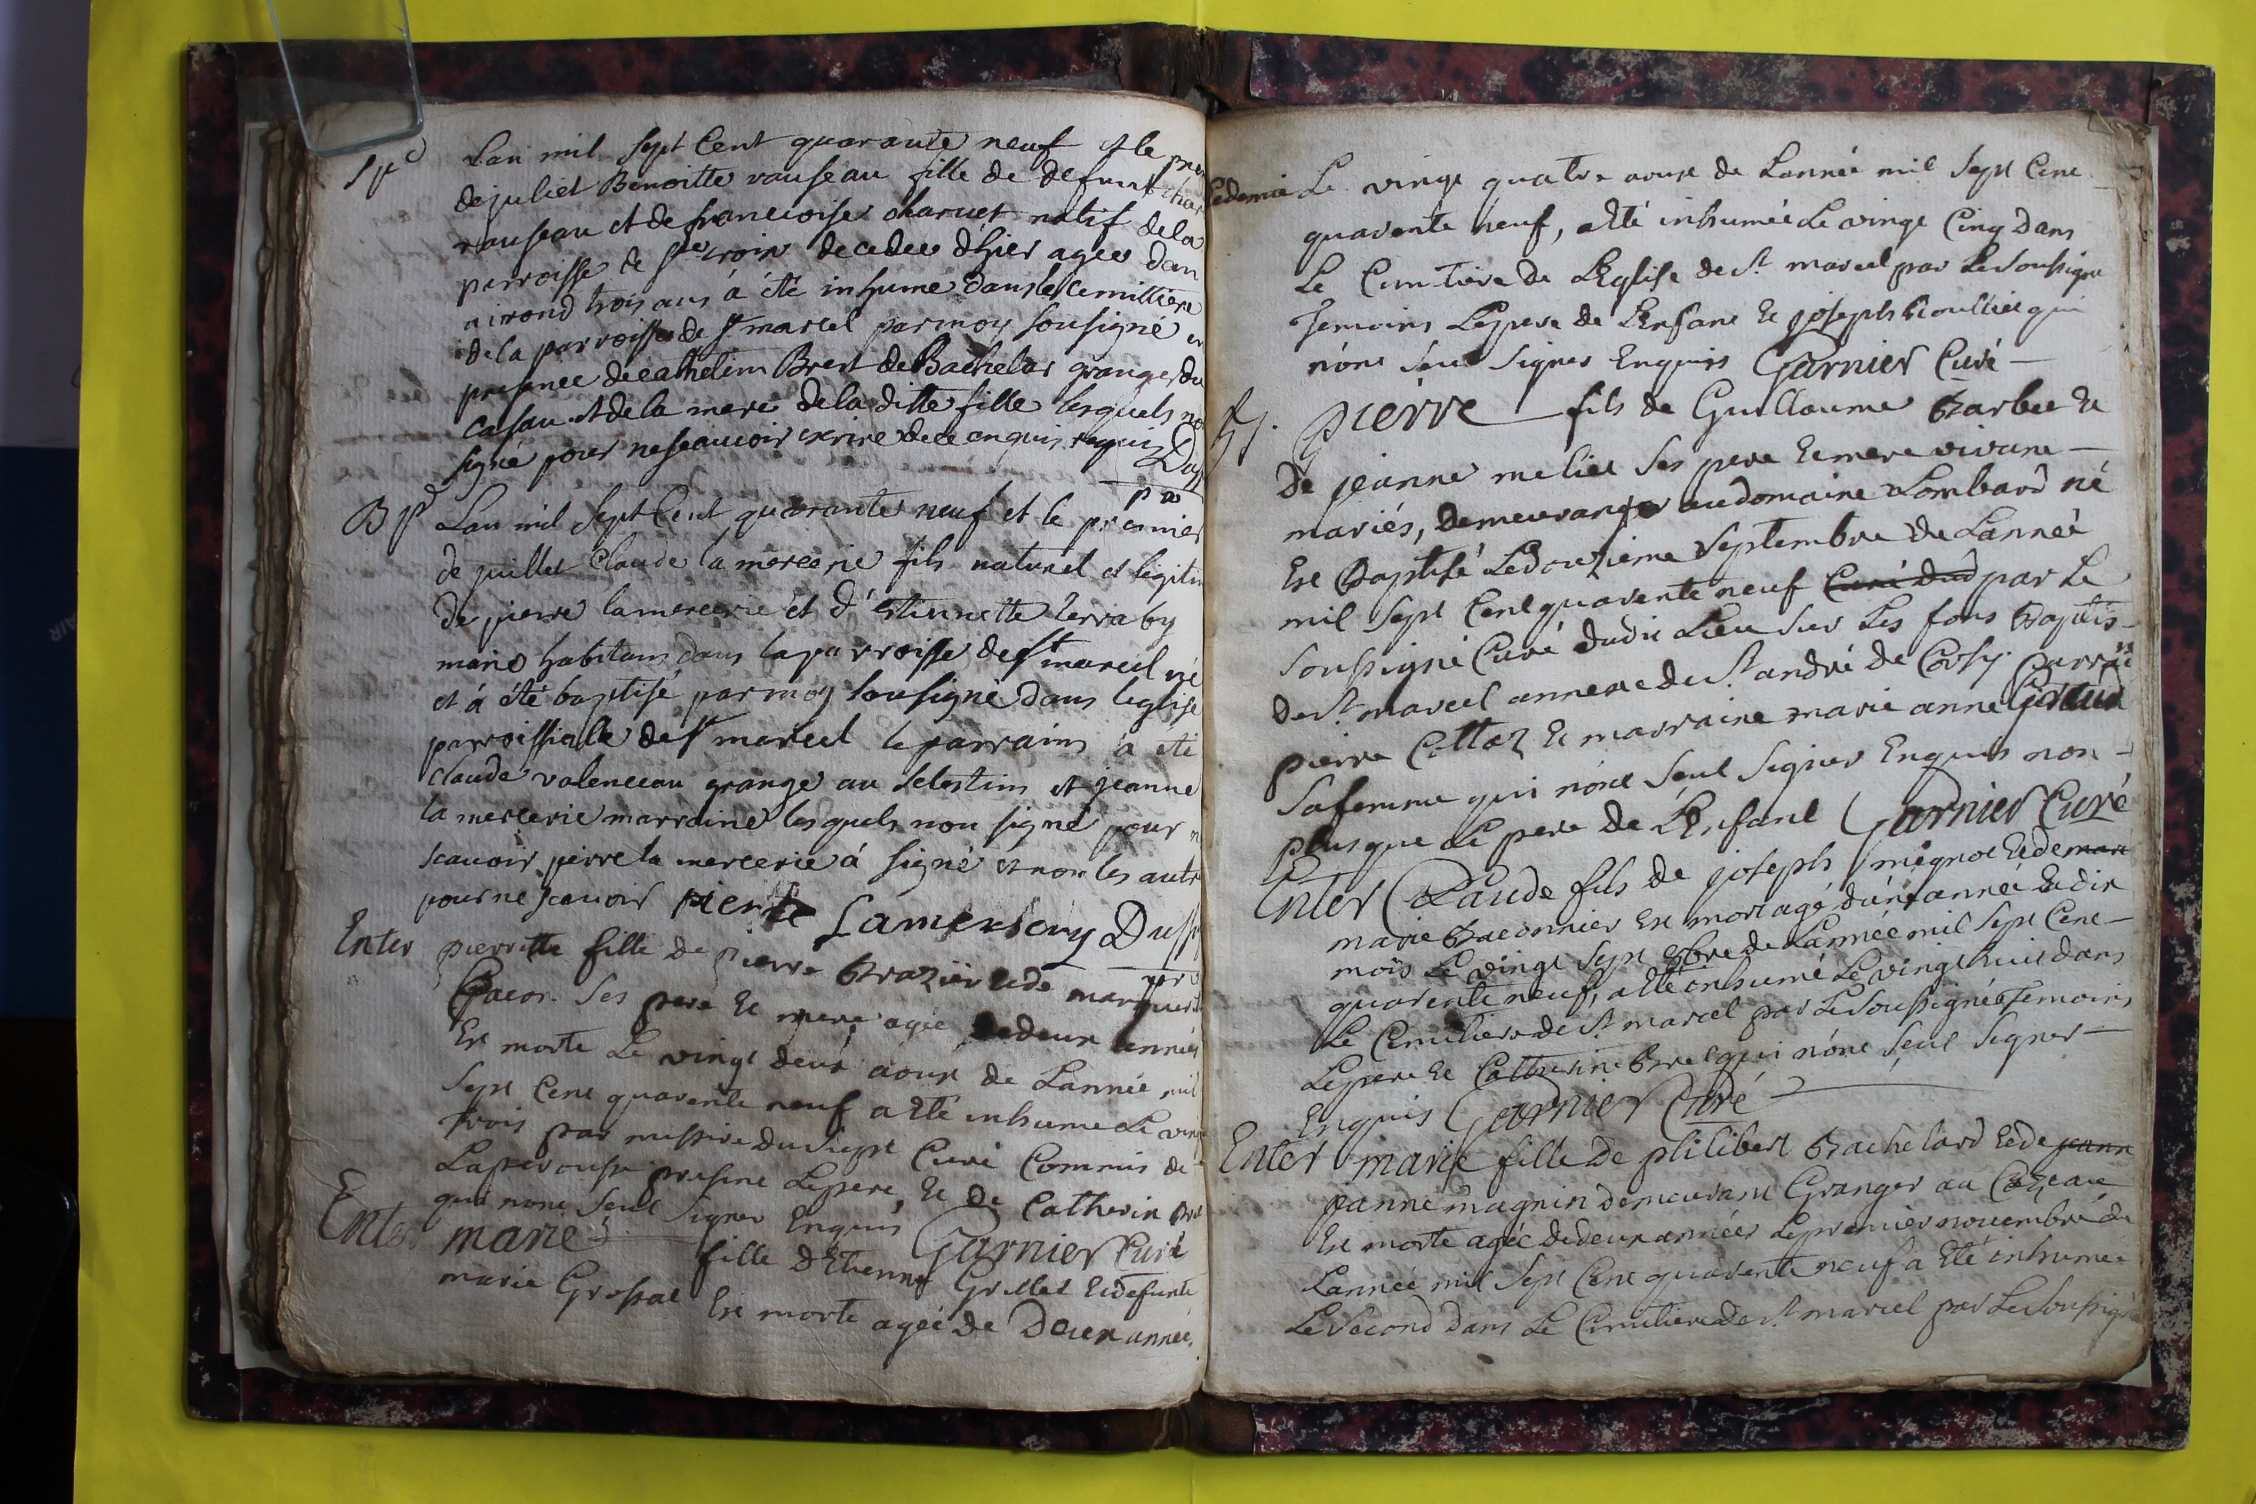 Spc Lan mil sept Cent quarante neuf et le
de juliet Benoitte rauseau fille de defunt
rauseau et de francoise charuet natif de la
parroisse de Ste croix decedee d'hier agee dan
airond trois ans á été inhume dans le cemittiere
de la parroisse de st marcel par moy sousigné
presence de cathelin Bret de Bachelar granger du
casau et de la mere de la ditte fille lesquels
signé pour ne seauvoir exrire de ce enquis requis
Bp Lan mil sept Cent quarante neuf et le premier
de juillet Claude la mercerie fils naturel et legitim
de pierre lamercerie et d'Etiennette terra by
marié habitans dans la parroisse de st marcel né
et á été baptisé par moy sousigné dans leglise
parroissialle de st marcel le parrains á été
claude valenceau grange au selestins et jeanne
la mercerie marraine lesquels non signé pour
scauoir pierre la mercerie á signé et non les autr
pour ne scauoir Pierre Lamersery
Enter pierrette fille de pierre Brazier et de marguerit
Gacon ses pere et mere agée de deux années
Est morte Le vingt deux aoust de Lannée mil
Sept Cent quarente neuf a Eté inhumé Le vingt
trois par messire Curé Commis de
Laperouse presens Le pere, et de Catherin Bret
qui nont seut signer Enquis Garnier Curé
Enter marie fille d'Etienne Grillet et defunte
marie Grossat Est morte agée de Deux années
Le vingt quatre aoust de Lannée mil Sept Cent
quarente neuf, a Eté inhumée Le vingt Cinq dans
Le Cimetiere de L'Eglise de St marcel par Le Soussigné
Temoins Le pere de L'Enfant Et joseph qui
n'ont Seut Signer Enquis Garnier Curé
Bt. pierre fils de Guillaume Barbet Et
De jeanne meliet Ses pere Et mere vivant
mariés, Demeurant au domaine Lombard né
Est Baptisé Le Douzieme Septembre De Lannée
mil Sept Cent quarente neuf par Le
Soussigné Curé dudit Lieu Sur Les fons Baptis
De St marcel annexe de St andré de Corsy. Parrain
pierre Cottaz Et marraine marie anne
Sa femme qui n'ont Seut Signer Enquis non
plus que Le pere de L'Enfant Garnier Curé
Enter Claude fils de joseph mignot Et de mari
marie Baconnier Est mort agé d'une année Et dix
mois Le vingt Sept de Lannée mil Sept Cent
quarente neuf, a Eté inhumé Le vingt huit dans
Le Cemitiere de St marcel par Le Soussigné Temoins
Le pere Et Catherin Bret qui n'ont Seut Signer
Enquis Garnier Curé
Enter marie fille De philibert Bachelard Et de jeann
jeanne magnin Demeurant Granger au Cazeau
Est morte agée de deux années Le premier novembre de
Lannée mil Sept Cent quarente neuf a Eté inhumée
Le Second Dans Le Cimitiere de St marcel par Le Soussigné